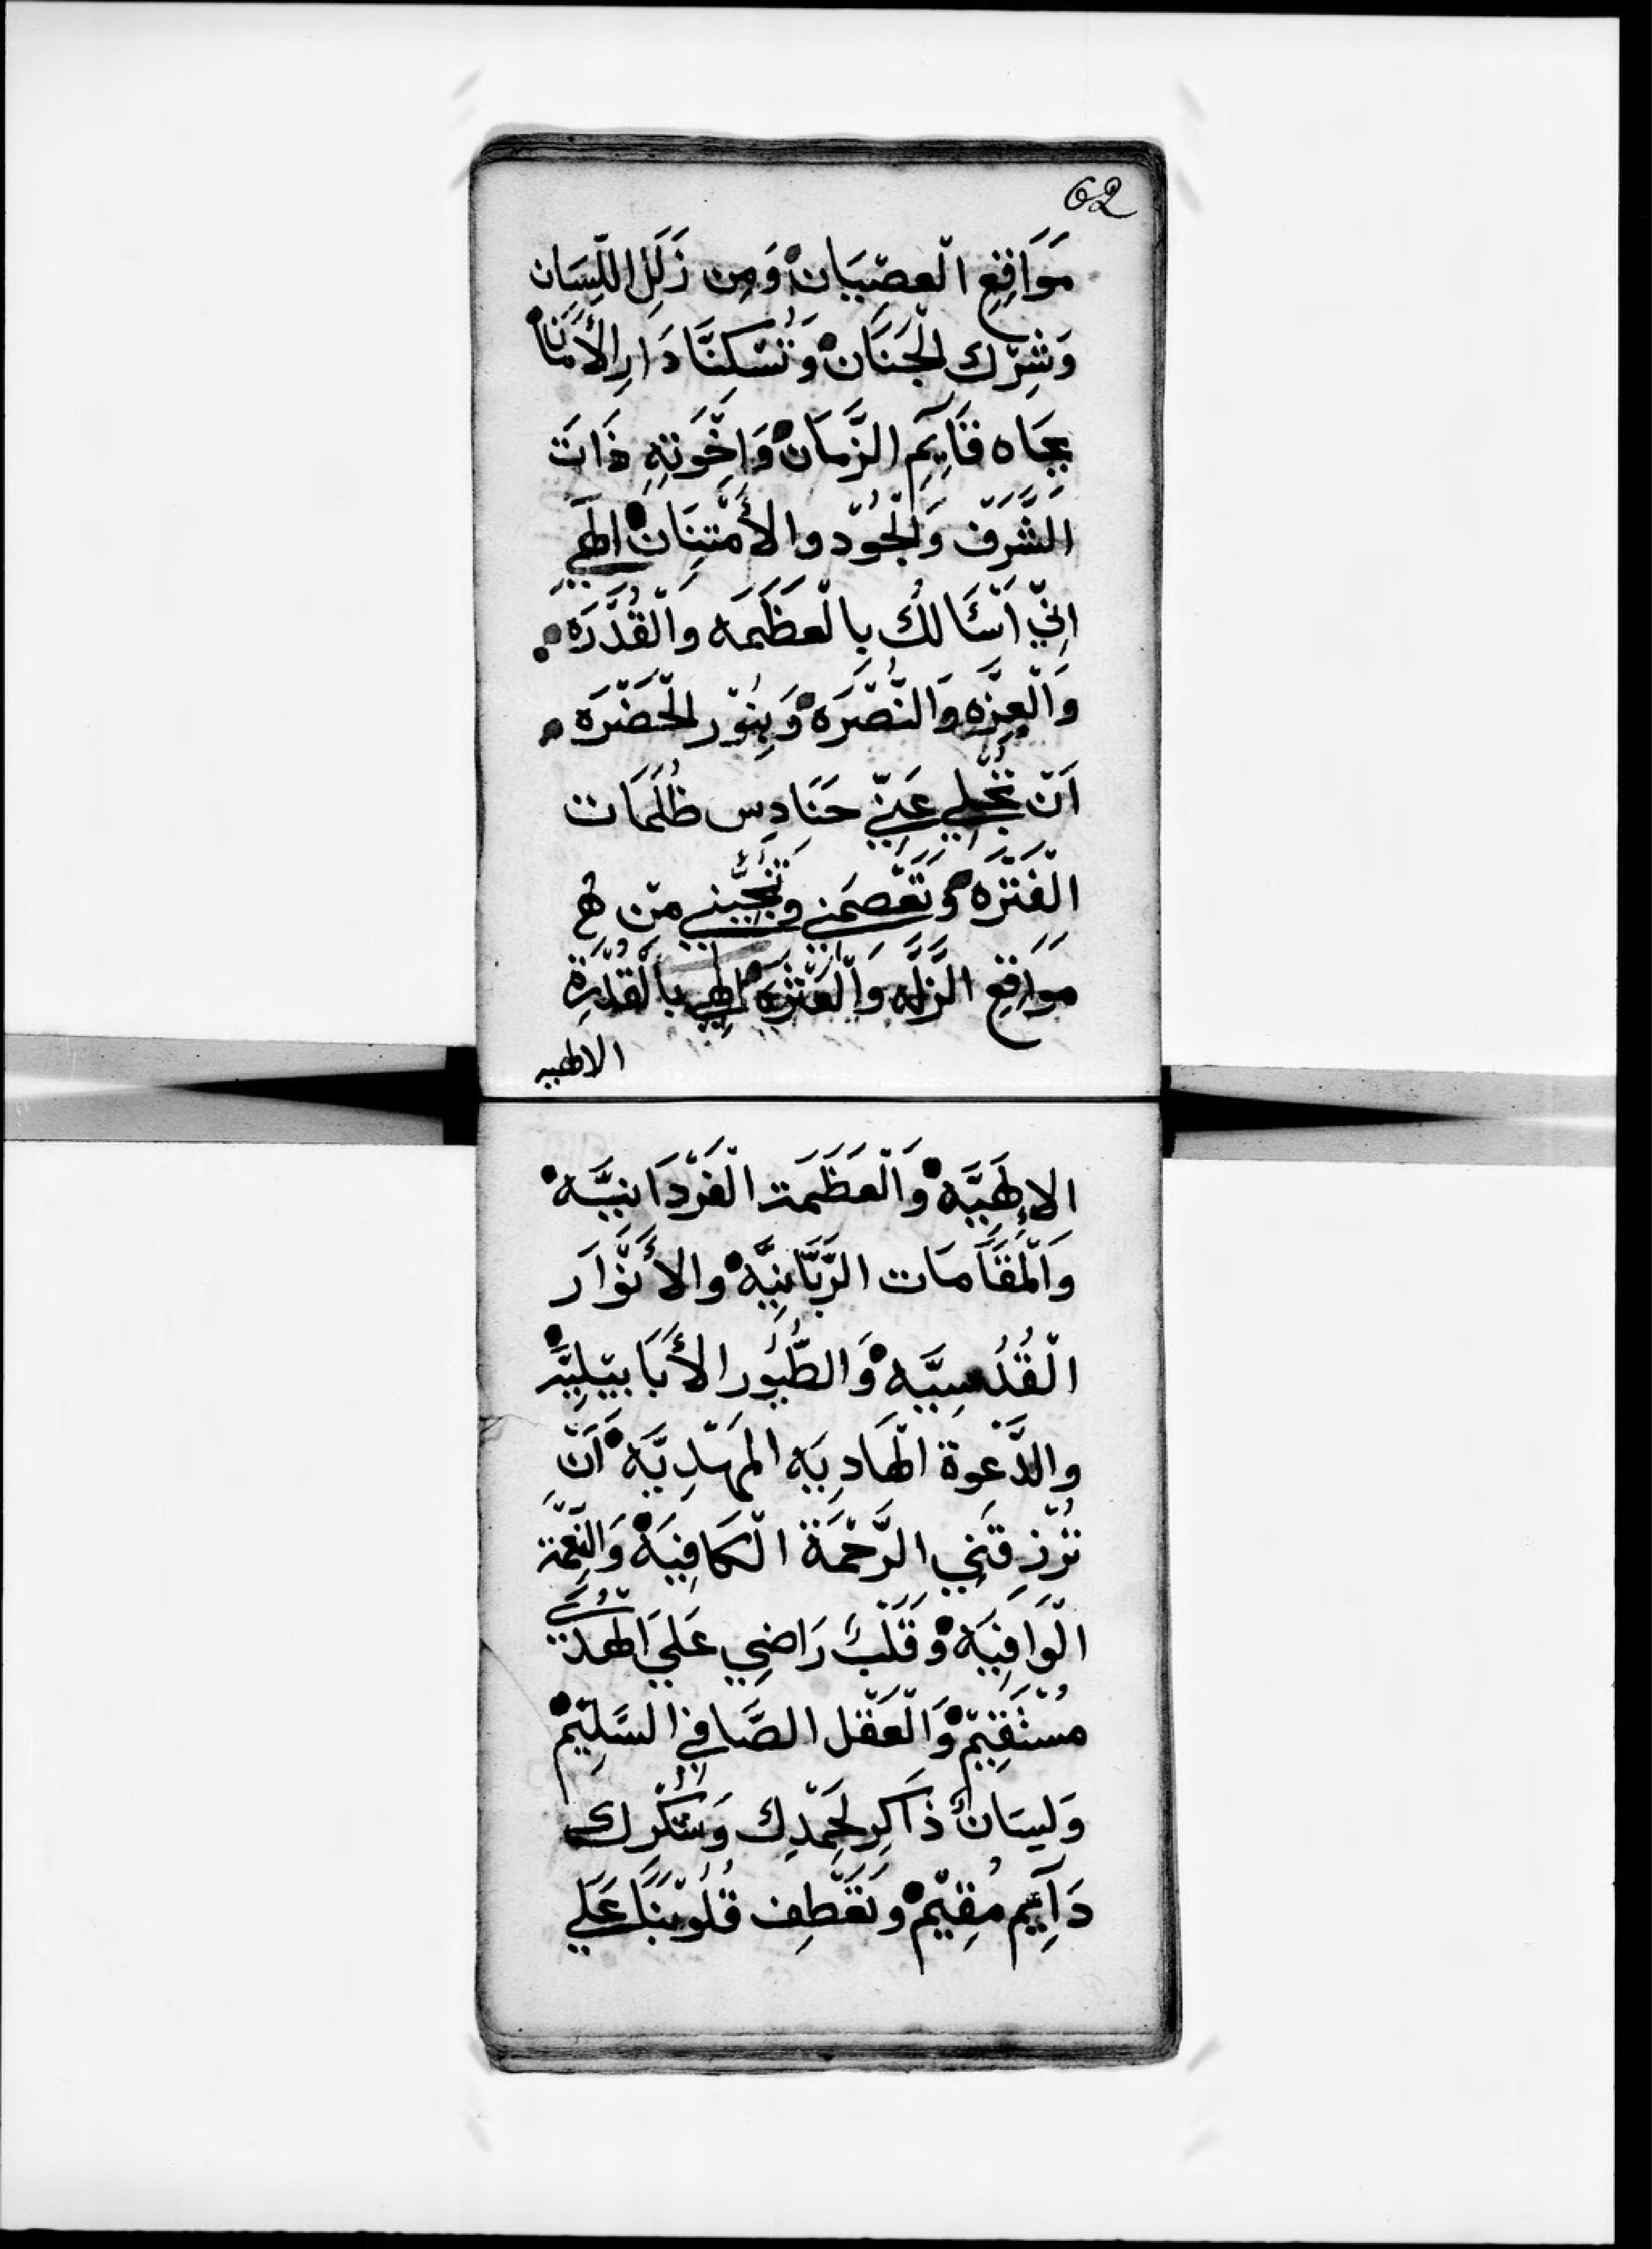 62
مَوَاقِعِ الْعِصْيَانْ وَمِن زَلَلِ اللِّسَان
وَشِرْك الْجَنَانْ وَتُسْكِنَّا دَارِ الأَمَانْ
بِجَاه قَايِمِ الزَّمَانْ وَإِخْوَتِهِ ذَاتَ
الشَّرَفْ وَالْجُوْد والأَمْتِنَانْ الهي
اِنِّي اَسْئَالُكَ بِالْعَظَمَه وَالْقُدْرَه
وَالْعِزَّه وَالنُّصْرَه وَبِنُوْر الْحَضْرَه
اَنْ تُجْلِي عَنِّي حَنَادِس ظُلَمَات
الْفَتْرَه وَتَعْصِمَني وتُنَجِّيني مِنْ
مَوَاقِعِ الزَّلَّه وَالْعَثْرَه إِلهي بالْقُدْرَةِ
الالهيه
الإلهَيَّه وَالْعَظَمَت الْفَرْدَانِيَّه
وَالْمَقَامَات الرَّبَّانِيَّه والأَنْوَار
الْقُدُسِيَّه وَالطُّيُور الأَبَابِيْلِيَّه
والدَّعْوة الْهَادِيَه المَهْدِيَّه اَنْ
تُرْزِقَنِي الرَّحْمَة الْكَافِيَه وَالنِّعْمَة
الْوَافِيَه وَقَلْبٌ رَاضِي عَلَي الْهُدَي
مُسْتَقِيْمْ وَالْعَقْل الصَّافِي السَّلِيْمْ
وَلِيسَانٌ ذَاكِر لِحَمْدِك وَشُكْرِك
دَآيِم مُقِيْمْ وَتَعْطِف قُلُوْبَنَا عَلَي